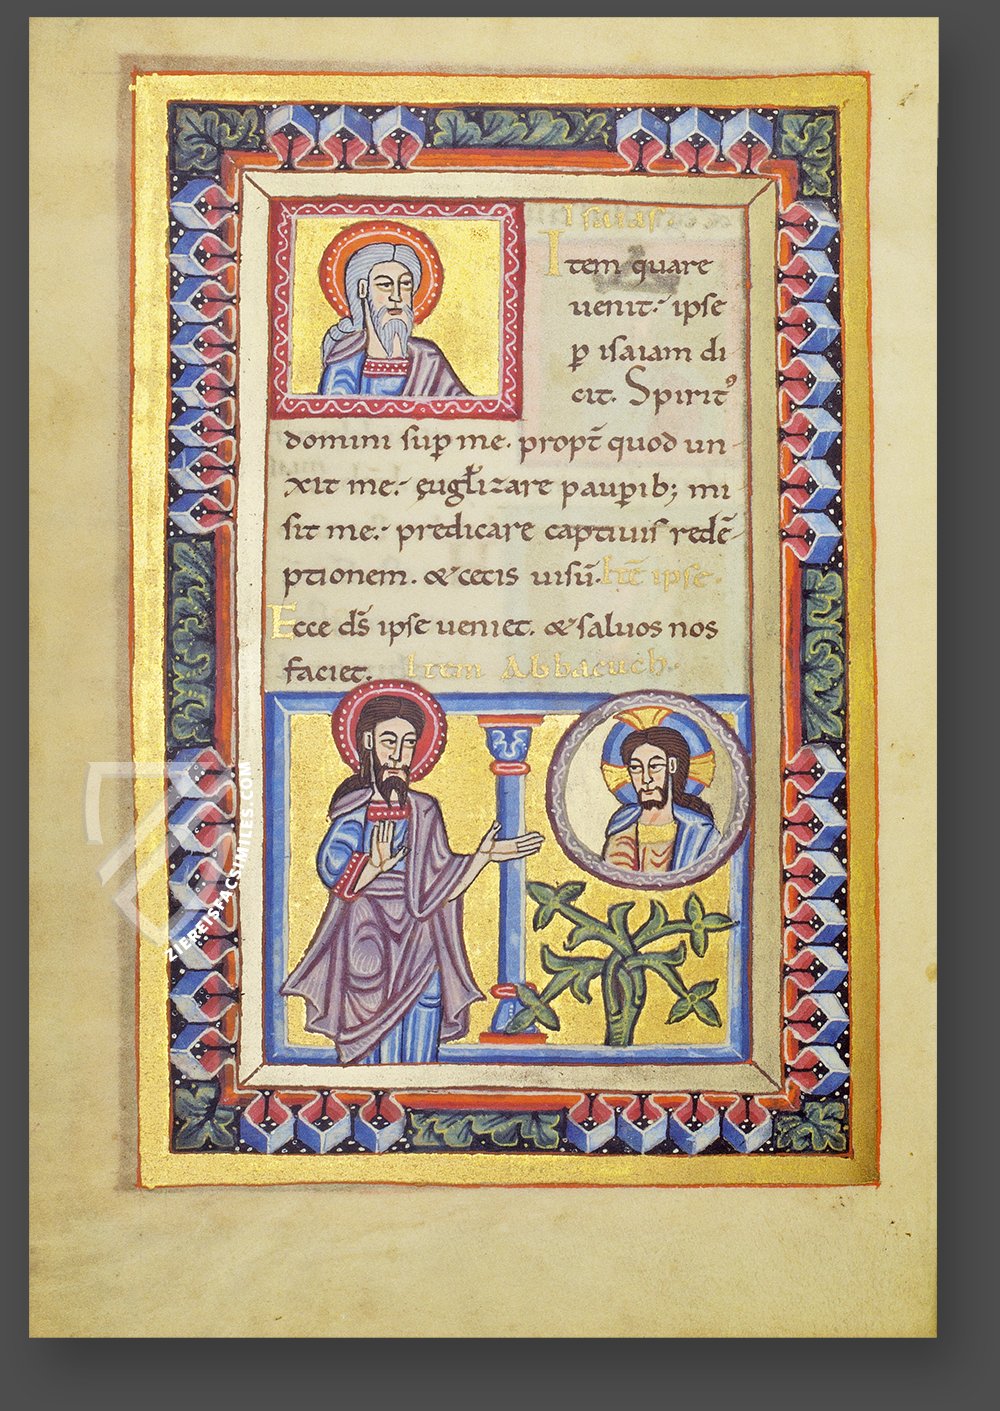 Isaias
Item quare
uenit. ipse
ꝑ isaiam di
cit. Spiritꝰ
domini suꝑ me. propt̄ quod un
xit me. ęuǥlizare pauꝑib; mi
sit me. predicare captiuis redē
ptionem. & cecis uisū. Itē ipse.
Ecce dn̄s ipse ueniet. & saluos nos
faciet. Item Abbacuch.
ZIEREISFACSIMILES.COM